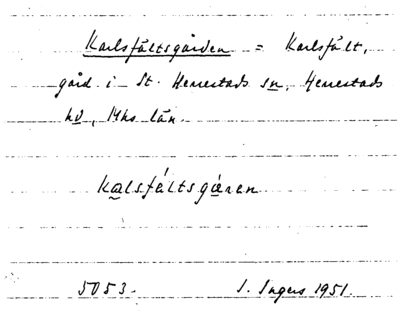 Karlsfältsgården = Karlsfält,
gård i St. Herrestads sn, Herrestads
hd, Mhs län.
kalsfáltsgáren
5053. I. Ingers 1951.